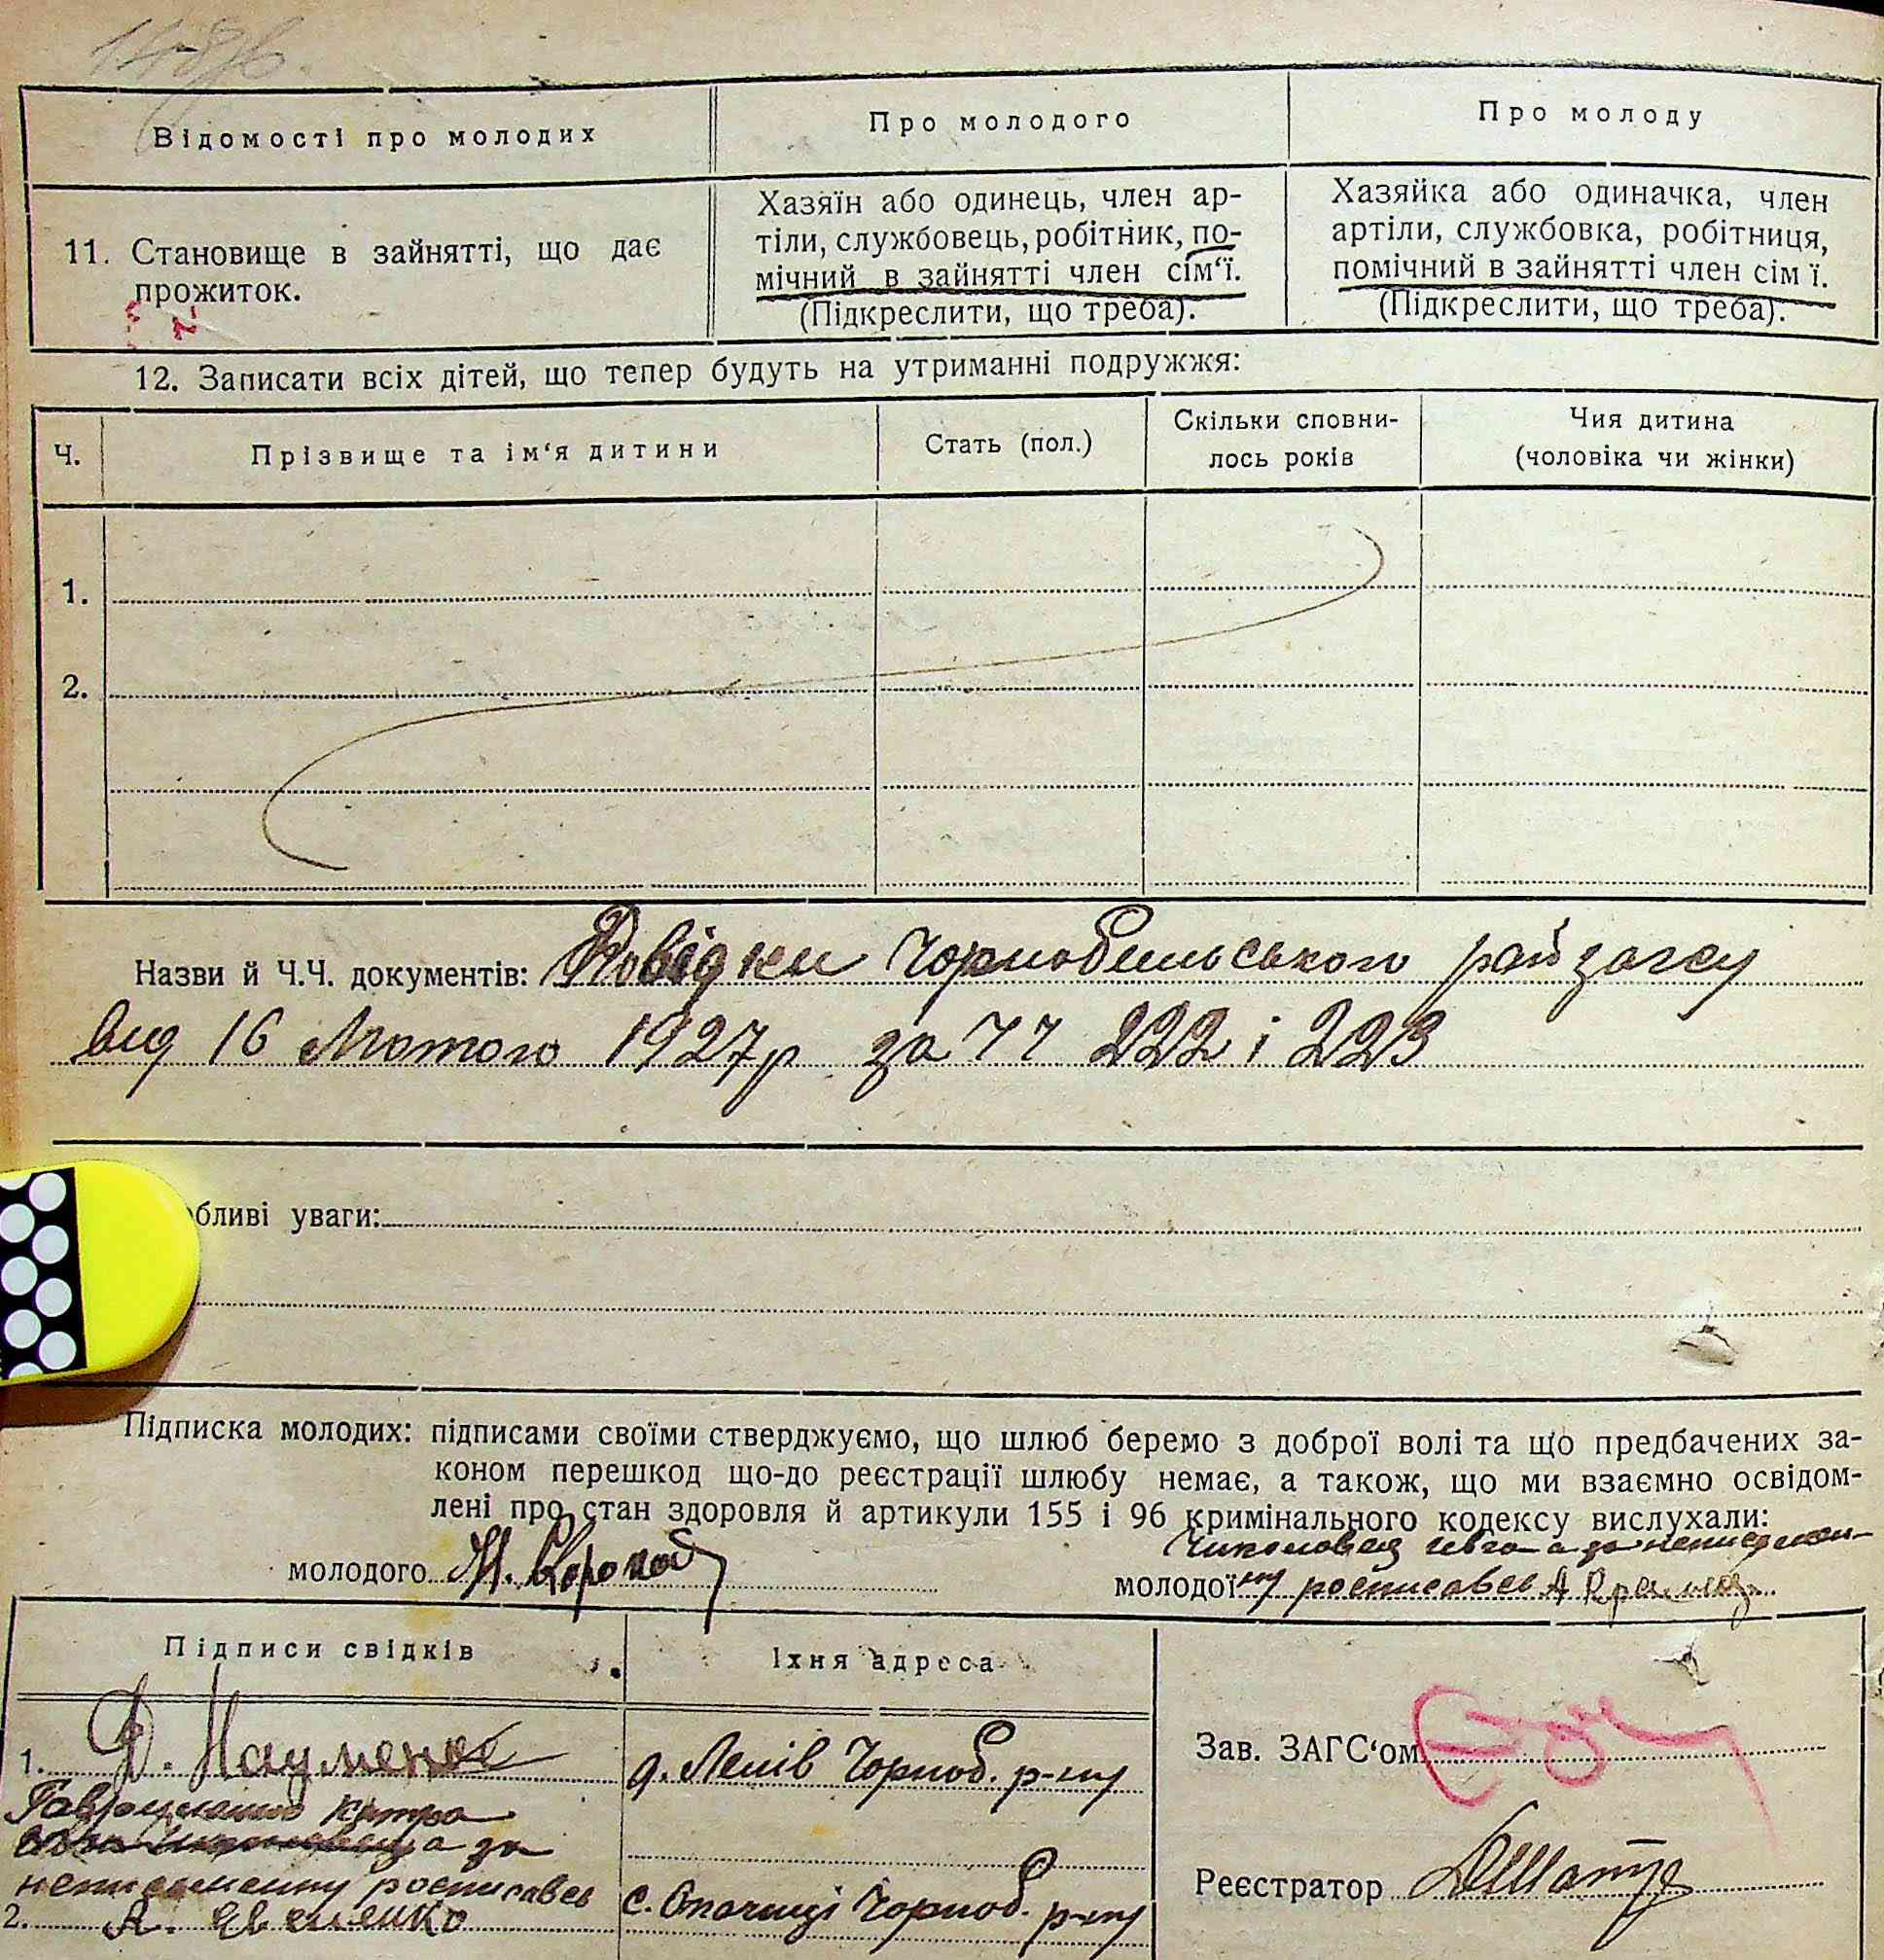 Відомості про молодих
Про молодого
Про молоду
11. Становище в зайнятті, що дає
прожиток.
Хазяїн або одинець, член ар-
тіли, службовець, робітник, по-
мічний в зайнятті член сім‘ї.
(Підкреслити, що треба).
Хазяйка або одиначка, член
артіли, службовка, робітниця,
помічний в зайнятті член сім ї.
(Підкреслити, що треба).
12. Записати всіх дітей, що тепер будуть на утриманні подружжя:
Ч.
Прізвище та ім‘я дитини
Стать (пол.)
Скільки сповни-
лось років
Чия дитина
(чоловіка чи жінки)
1.
2.
Назви й Ч.Ч. документів: Довідки Чорнобильського райзагсу
від 16 Лютого 1927р за ЧЧ 222 і 223
бливі уваги:
Підписка молодих: підписами своїми стверджуємо, що шлюб беремо з доброї волі та що предбачених за-
коном перешкод що-до реєстрації шлюбу немає, а також, що ми взаємно освідом-
лені про стан здоровля й артикули 155 і 96 кримінального кодексу вислухали:
молодого
а за неписьмен-
молодої ну росписавсь А
Підписи свідків
Їхня адреса
1. Д. Науменко
д. Лелів Чорноб. р-ну
Зав. ЗАГС‘ом
а за
неписьменну росписавсь
2. А.
с. Опачиці Чорноб. р-ну
Реєстратор